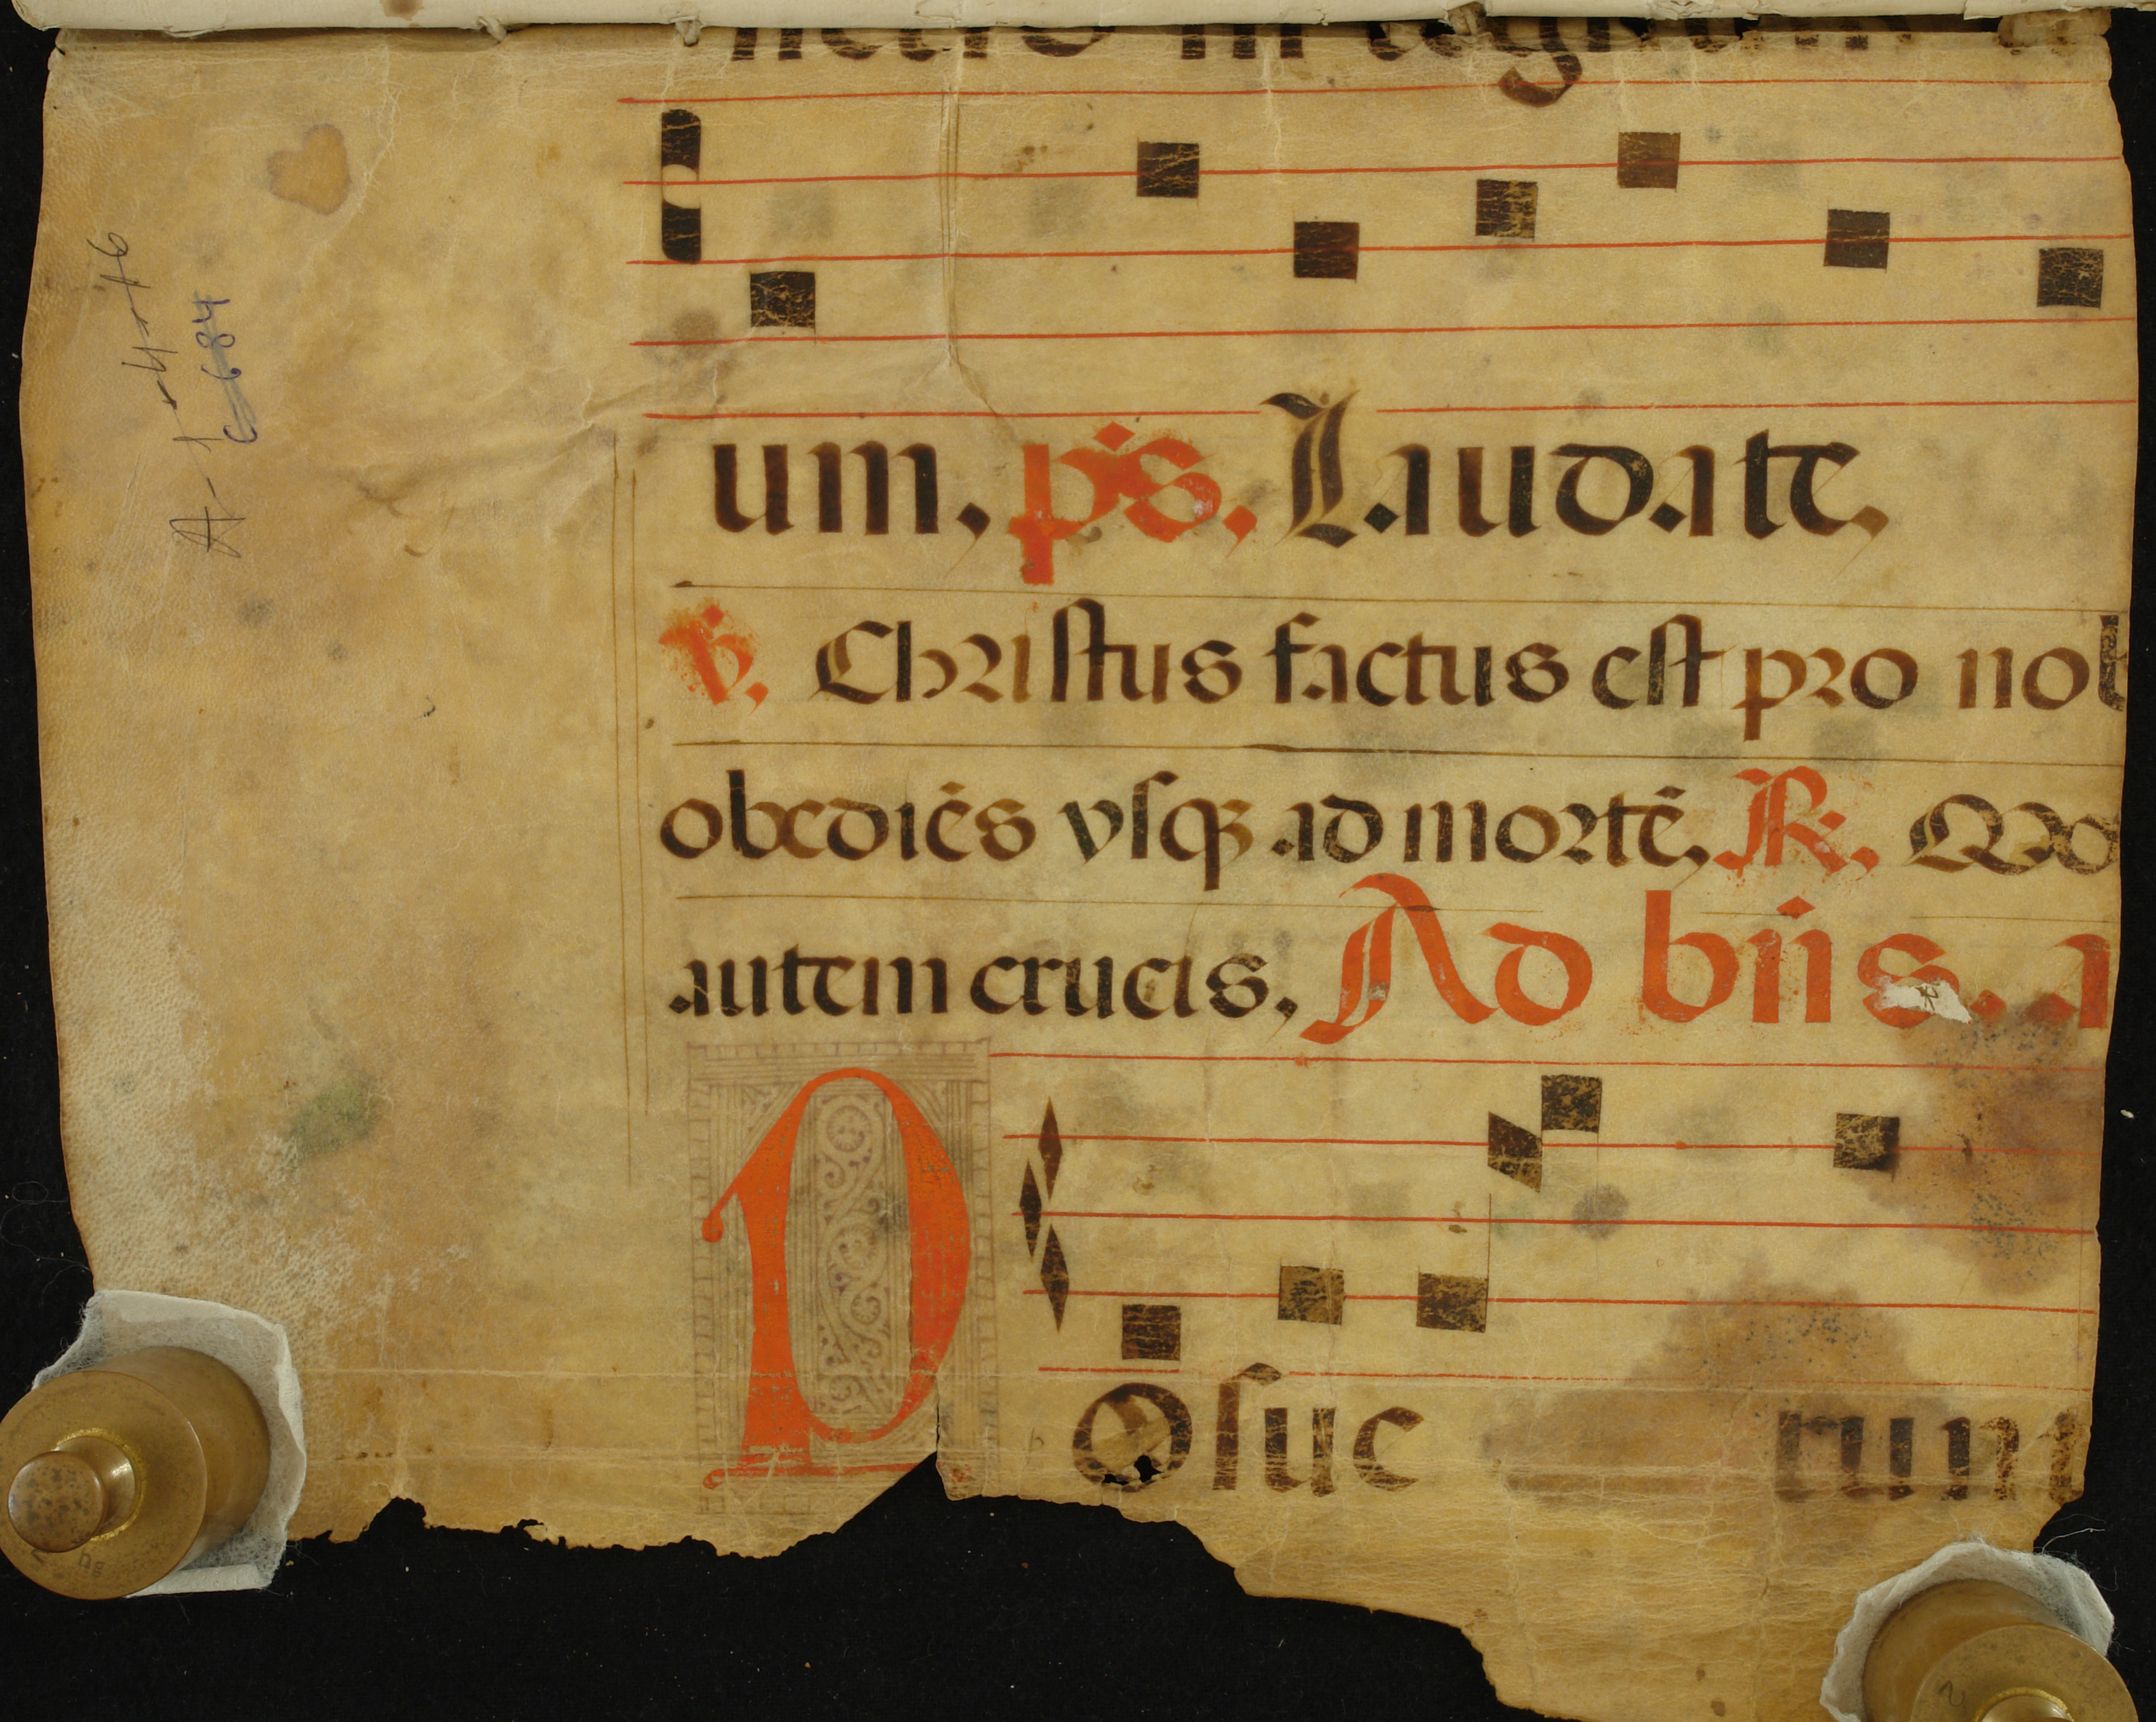 um, ps. Laudate,
℣. Christus factus est pro nob
obediēs vsqꝫ ad mortē, ℟. Mo
autem crucis, Ad bn̄s. a
Posue runt
A-1-4-16
6684